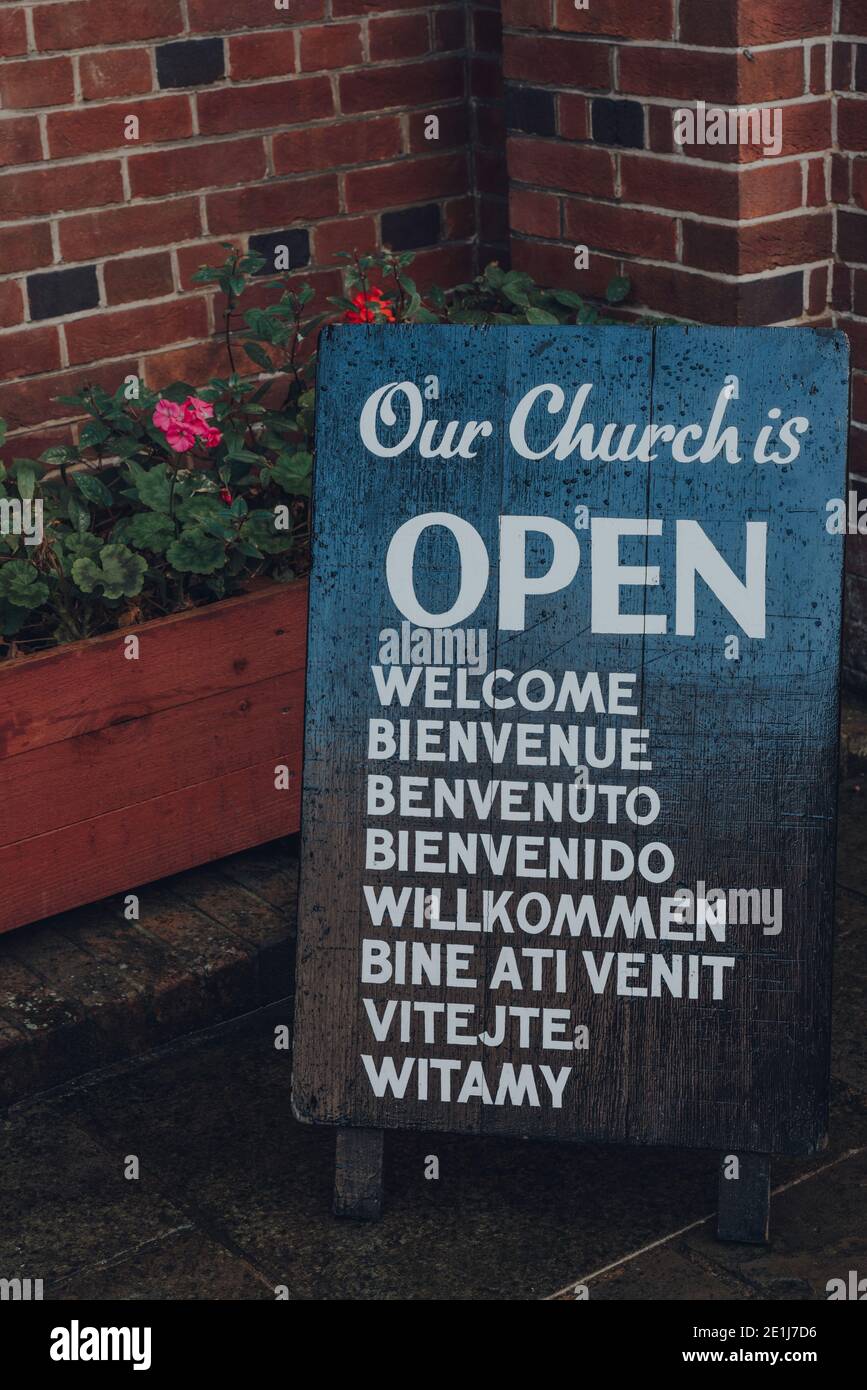 Our Church is
OPEN
WELCOME
BIENVENUE
BENVENUTO
BIENVENIDO
WILLKOMMEN
BINE ATI VENIT
VITEJTE
WITAMY
alamy
alamy
Image ID: 2E1J7D6
www.alamy.com